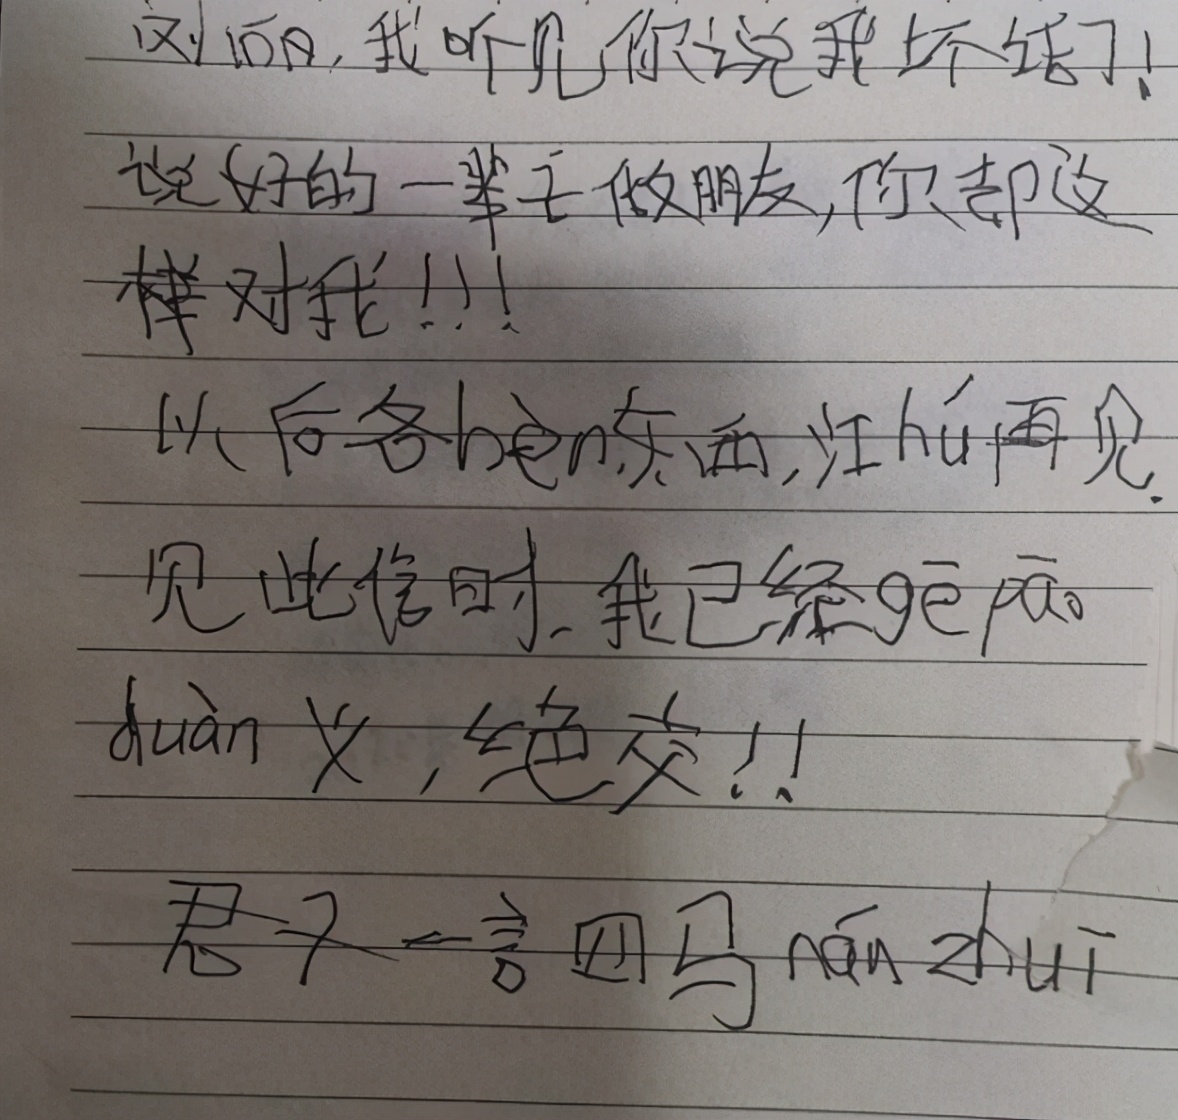 刘阳,我听见你说我坏话了!
说好的一辈子做朋友,你却这
样对我!!!
以后各bèn东西,江hú再见.
见此信时.我已经gē pāo
duàn义,绝交!!
君子一言四马nán zhuī